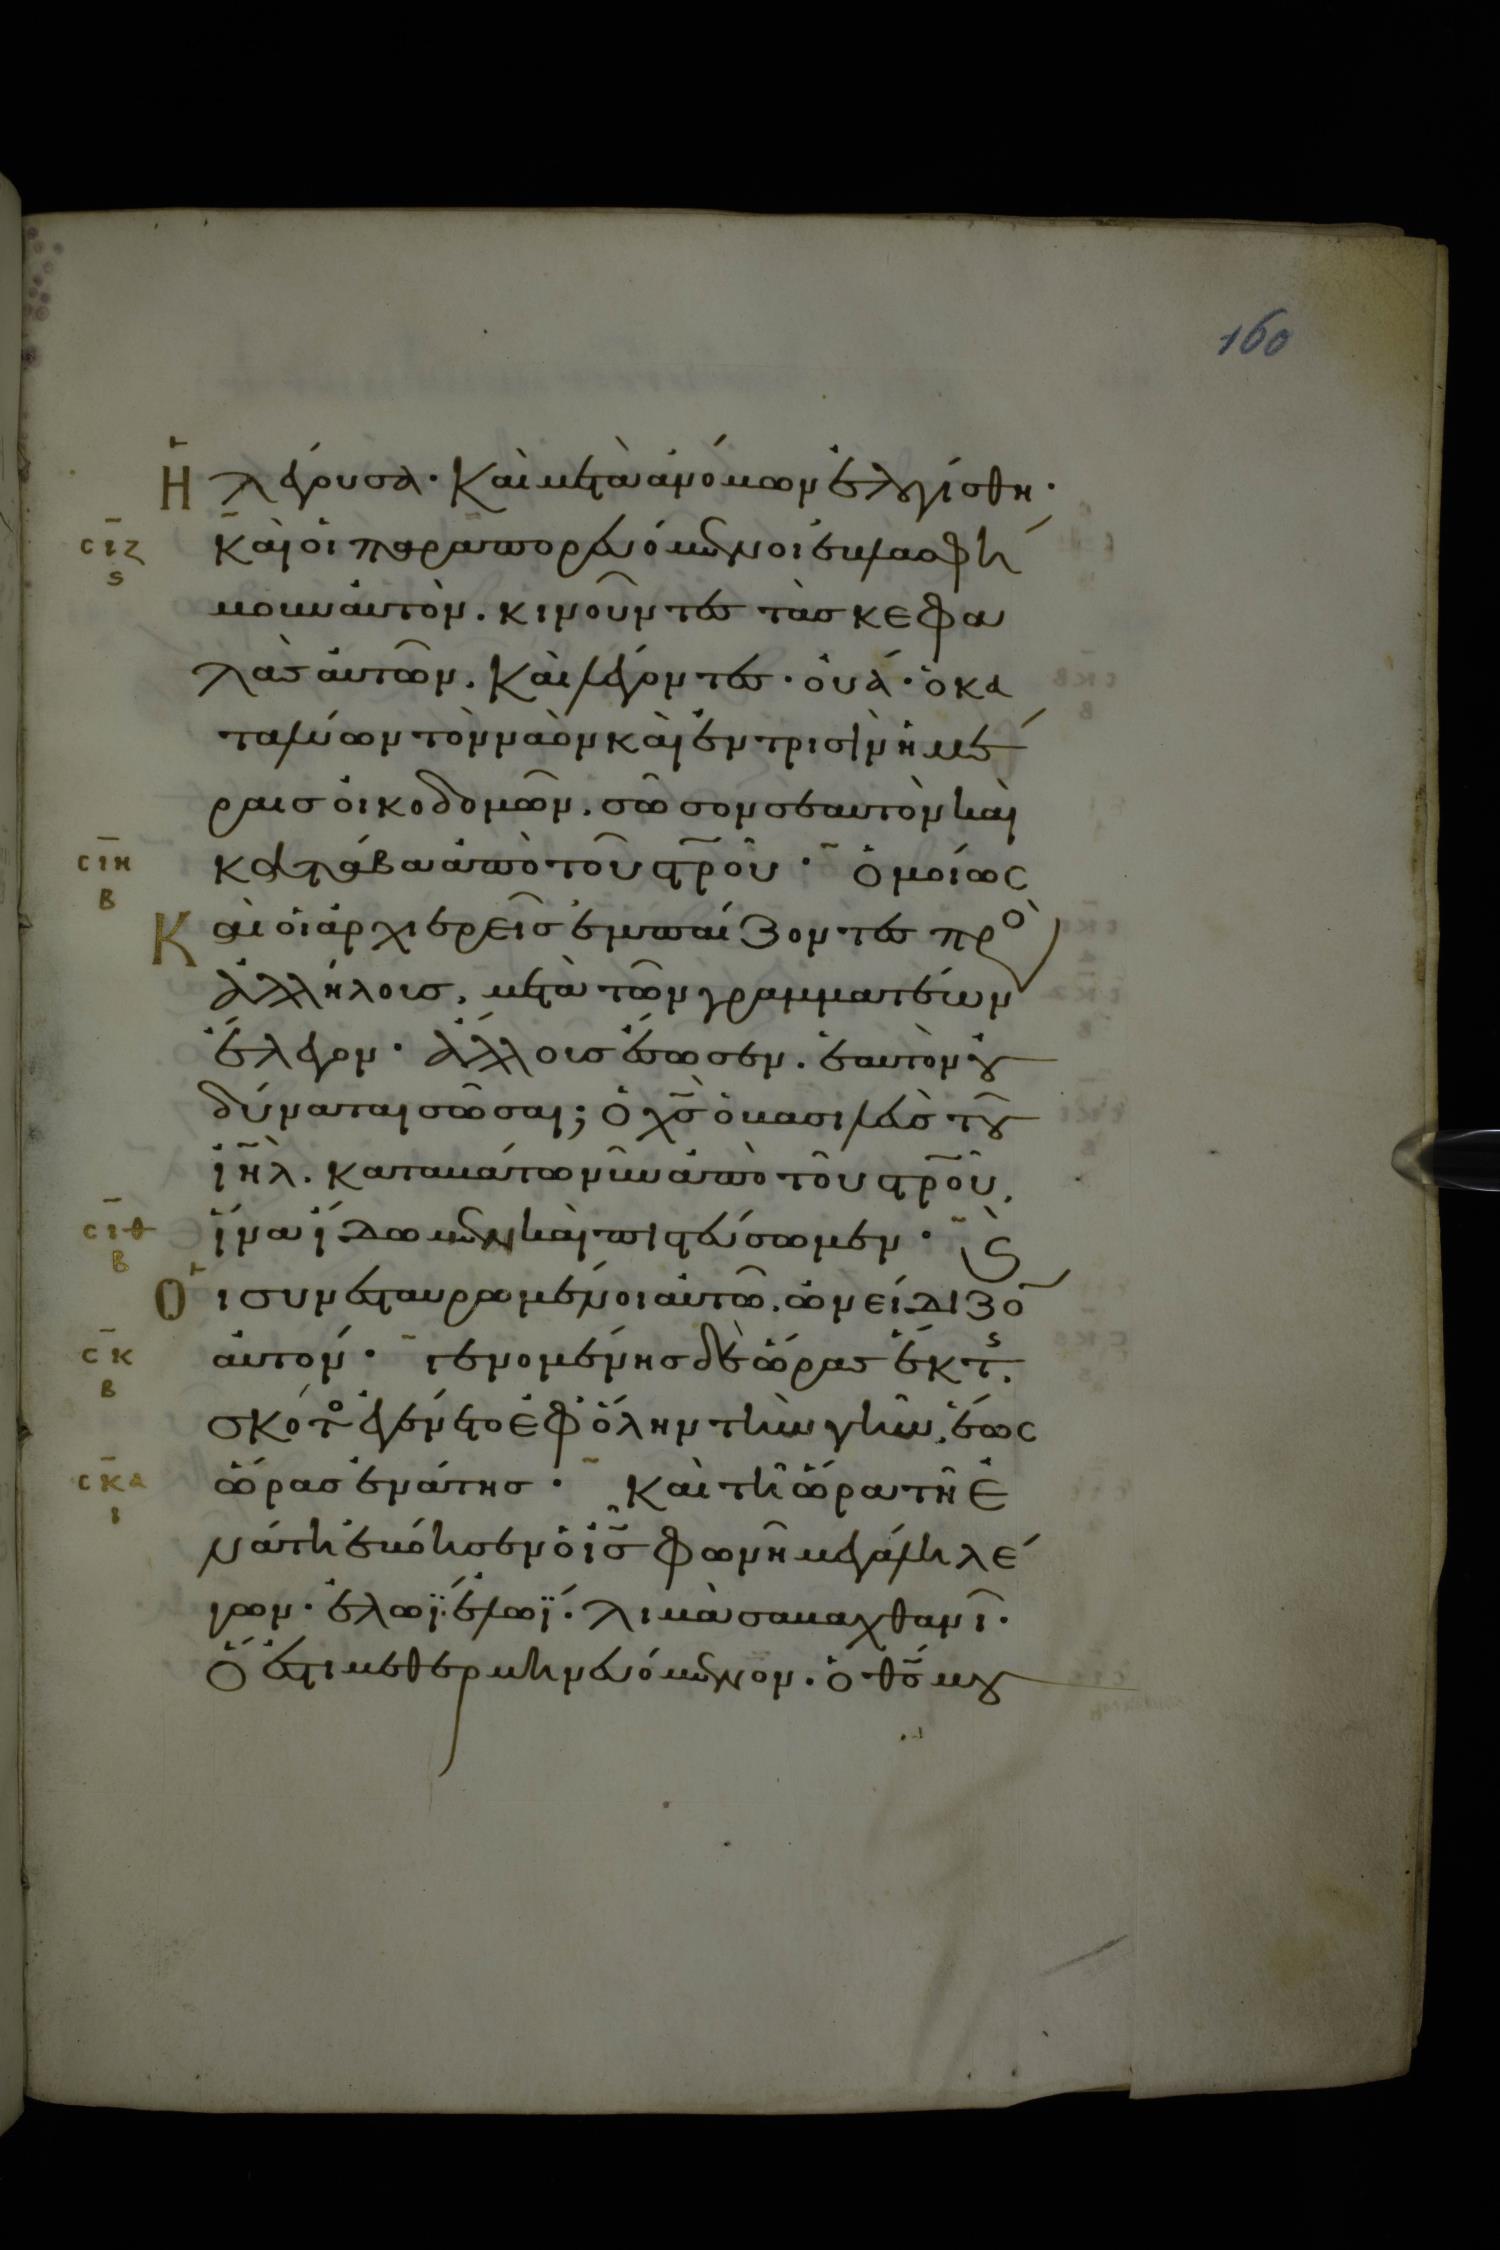 160
Ἡ λέγουσα· Καὶ μετὰ ἀνόμων ἐλογίσθη·
σιζ ς καὶ οἱ παραπορευόμενοι ἐβλασφή
μουν αὐτὸν. κινοῦντες τὰς κεφα
λὰς αὐτῶν. Καὶ λέγοντες· οὐά· ὁ κα
ταλύων τὸν ναὸν καὶ ἐν τρισὶν ἡμέ
ραις οἰκοδομῶν. σῶσον σεαυτὸν καὶ
σιη β κατάβα ἀπὸ τοῦ στ̅ρ̅οῦ· Ὁμοίως
Καὶ οἱ ἀρχιερεῖς ἐμπαίζοντες πρὸ
ἀλλήλοις, μετὰ τῶν γραμματέων
ἔλεγον· ἄλλοις ἔσωσεν. ἑαυτὸν οὐ
δύναται σῶσαι; Ὁ χ̅ς̅ ὁ βασιλεὺς τοῦ
ἰ̅η̅λ̅. καταβάτω νῦν ἀπὸ τοῦ στ̅ρ̅οῦ.
σιθ β ἵνα ἴδωμεν καὶ πιστεύσωμεν· Κ̀
Οἱ συνεσταυρωμένοι αὐτῶ. ὠνείδιζο̅
σκ β αὐτόν· γενομένης δὲ ὥρας ἕκτς.
σκότο ἐγένετο ἐφ ὅλην τὴν γῆν. ἕως
σκα ι ὥρας ἐνάτης· Καὶ τῆ ὥρα τῆ ἐ
νάτη ἐβόησεν ὁ ἰ̅ς̅ φωνῆ μεγάλη λέ
γων· ἐλωῒ ἐλωῒ. λιμὰ σαβαχθανῖ·
Ὅ ἐστι μεθερμηνευόμενον. ὁ θ̅ς̅ μου